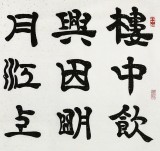 樓中飲
興因明
月江上